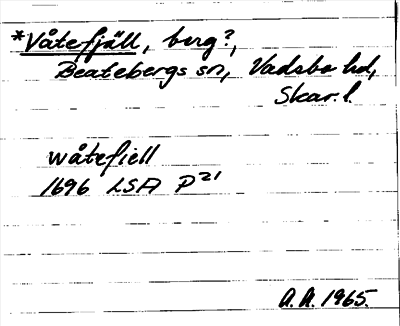 *Våtefjäll, berg?,
Beatebergs sn, Vadsbo hd,
Skar. l.
wåtefiell
1696 LSA P21
A.A. 1965.